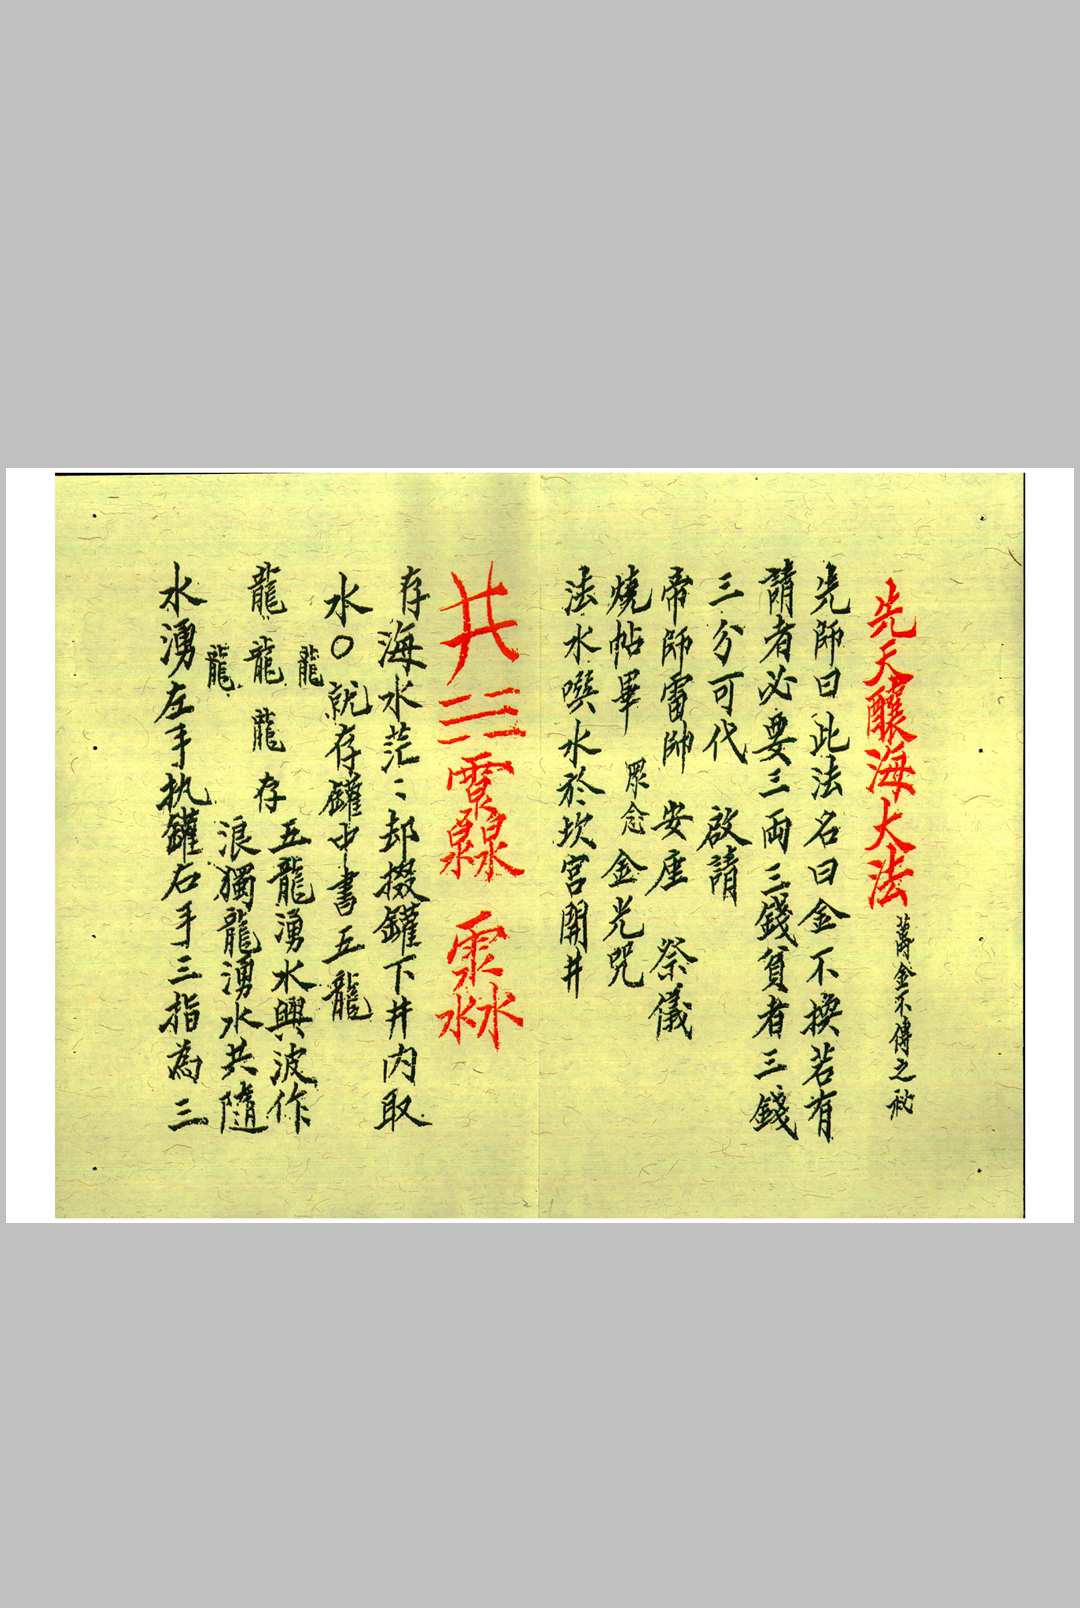 先天釀海大法 萬金不傳之秘
先師曰此法名曰金不換若有
請者必要三兩三錢貧者三錢
三分可代 啟請
帝師雷帥 安座 祭儀
燒帖畢 眾念金光咒
法水噀水於坎宮開井
井三三
存海水茫〻却掇罐下井內取
水〇就存罐中書五龍
龍
龍龍龍存五龍湧水興波作
龍
浪獨龍湧水共隨
水湧左手执罐右手三指為三